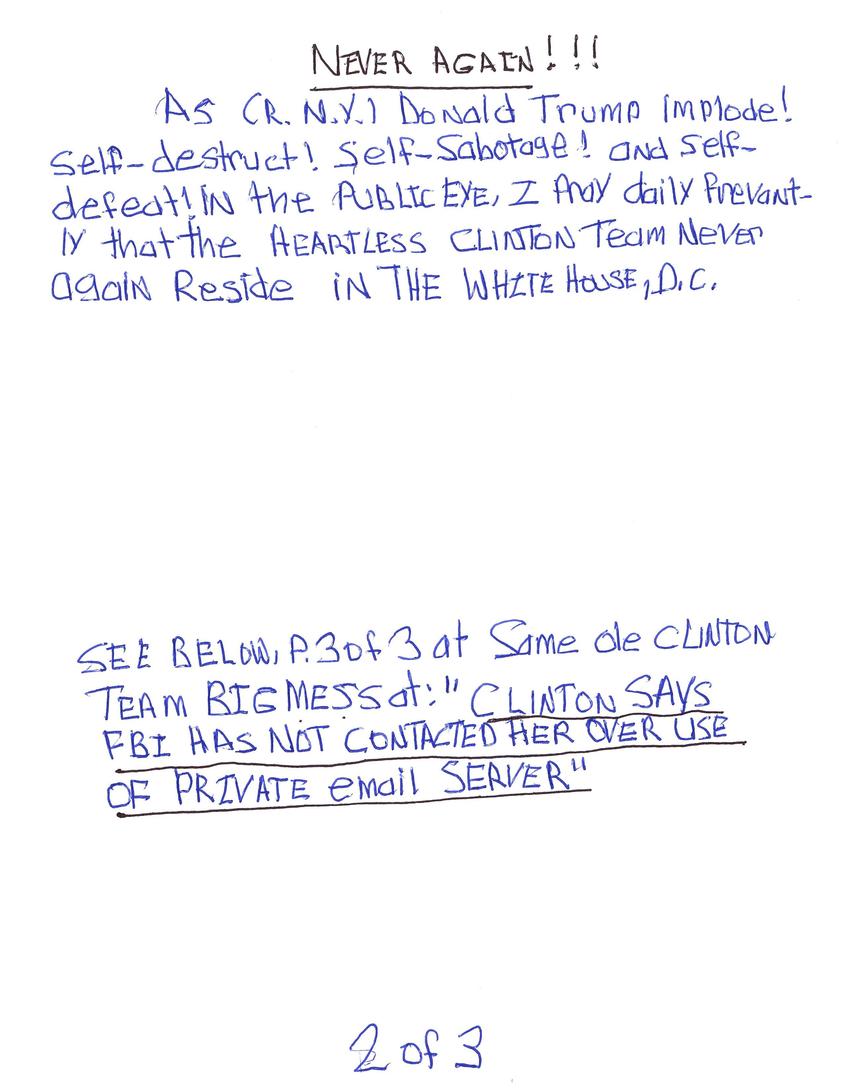 NEVER AGAIN!!!
As (R. N.Y.) Donald Trump implode!
Self-destruct! Self-Sabotage! and Self-
defeat! IN the PUBLIC EYE, I Pray daily Prevant-
ly that the HEARTLESS CLINTON Team Never
again Reside in THE WHITE HOUSE, D.C.
SEE BELOW, P. 3 of 3 at Same ole CLINTON
TEAM BIG MESS at: "CLINTON SAYS
FBI HAS NOT CONTACTED HER OVER USE
OF PRIVATE email SERVER"
2 of 3